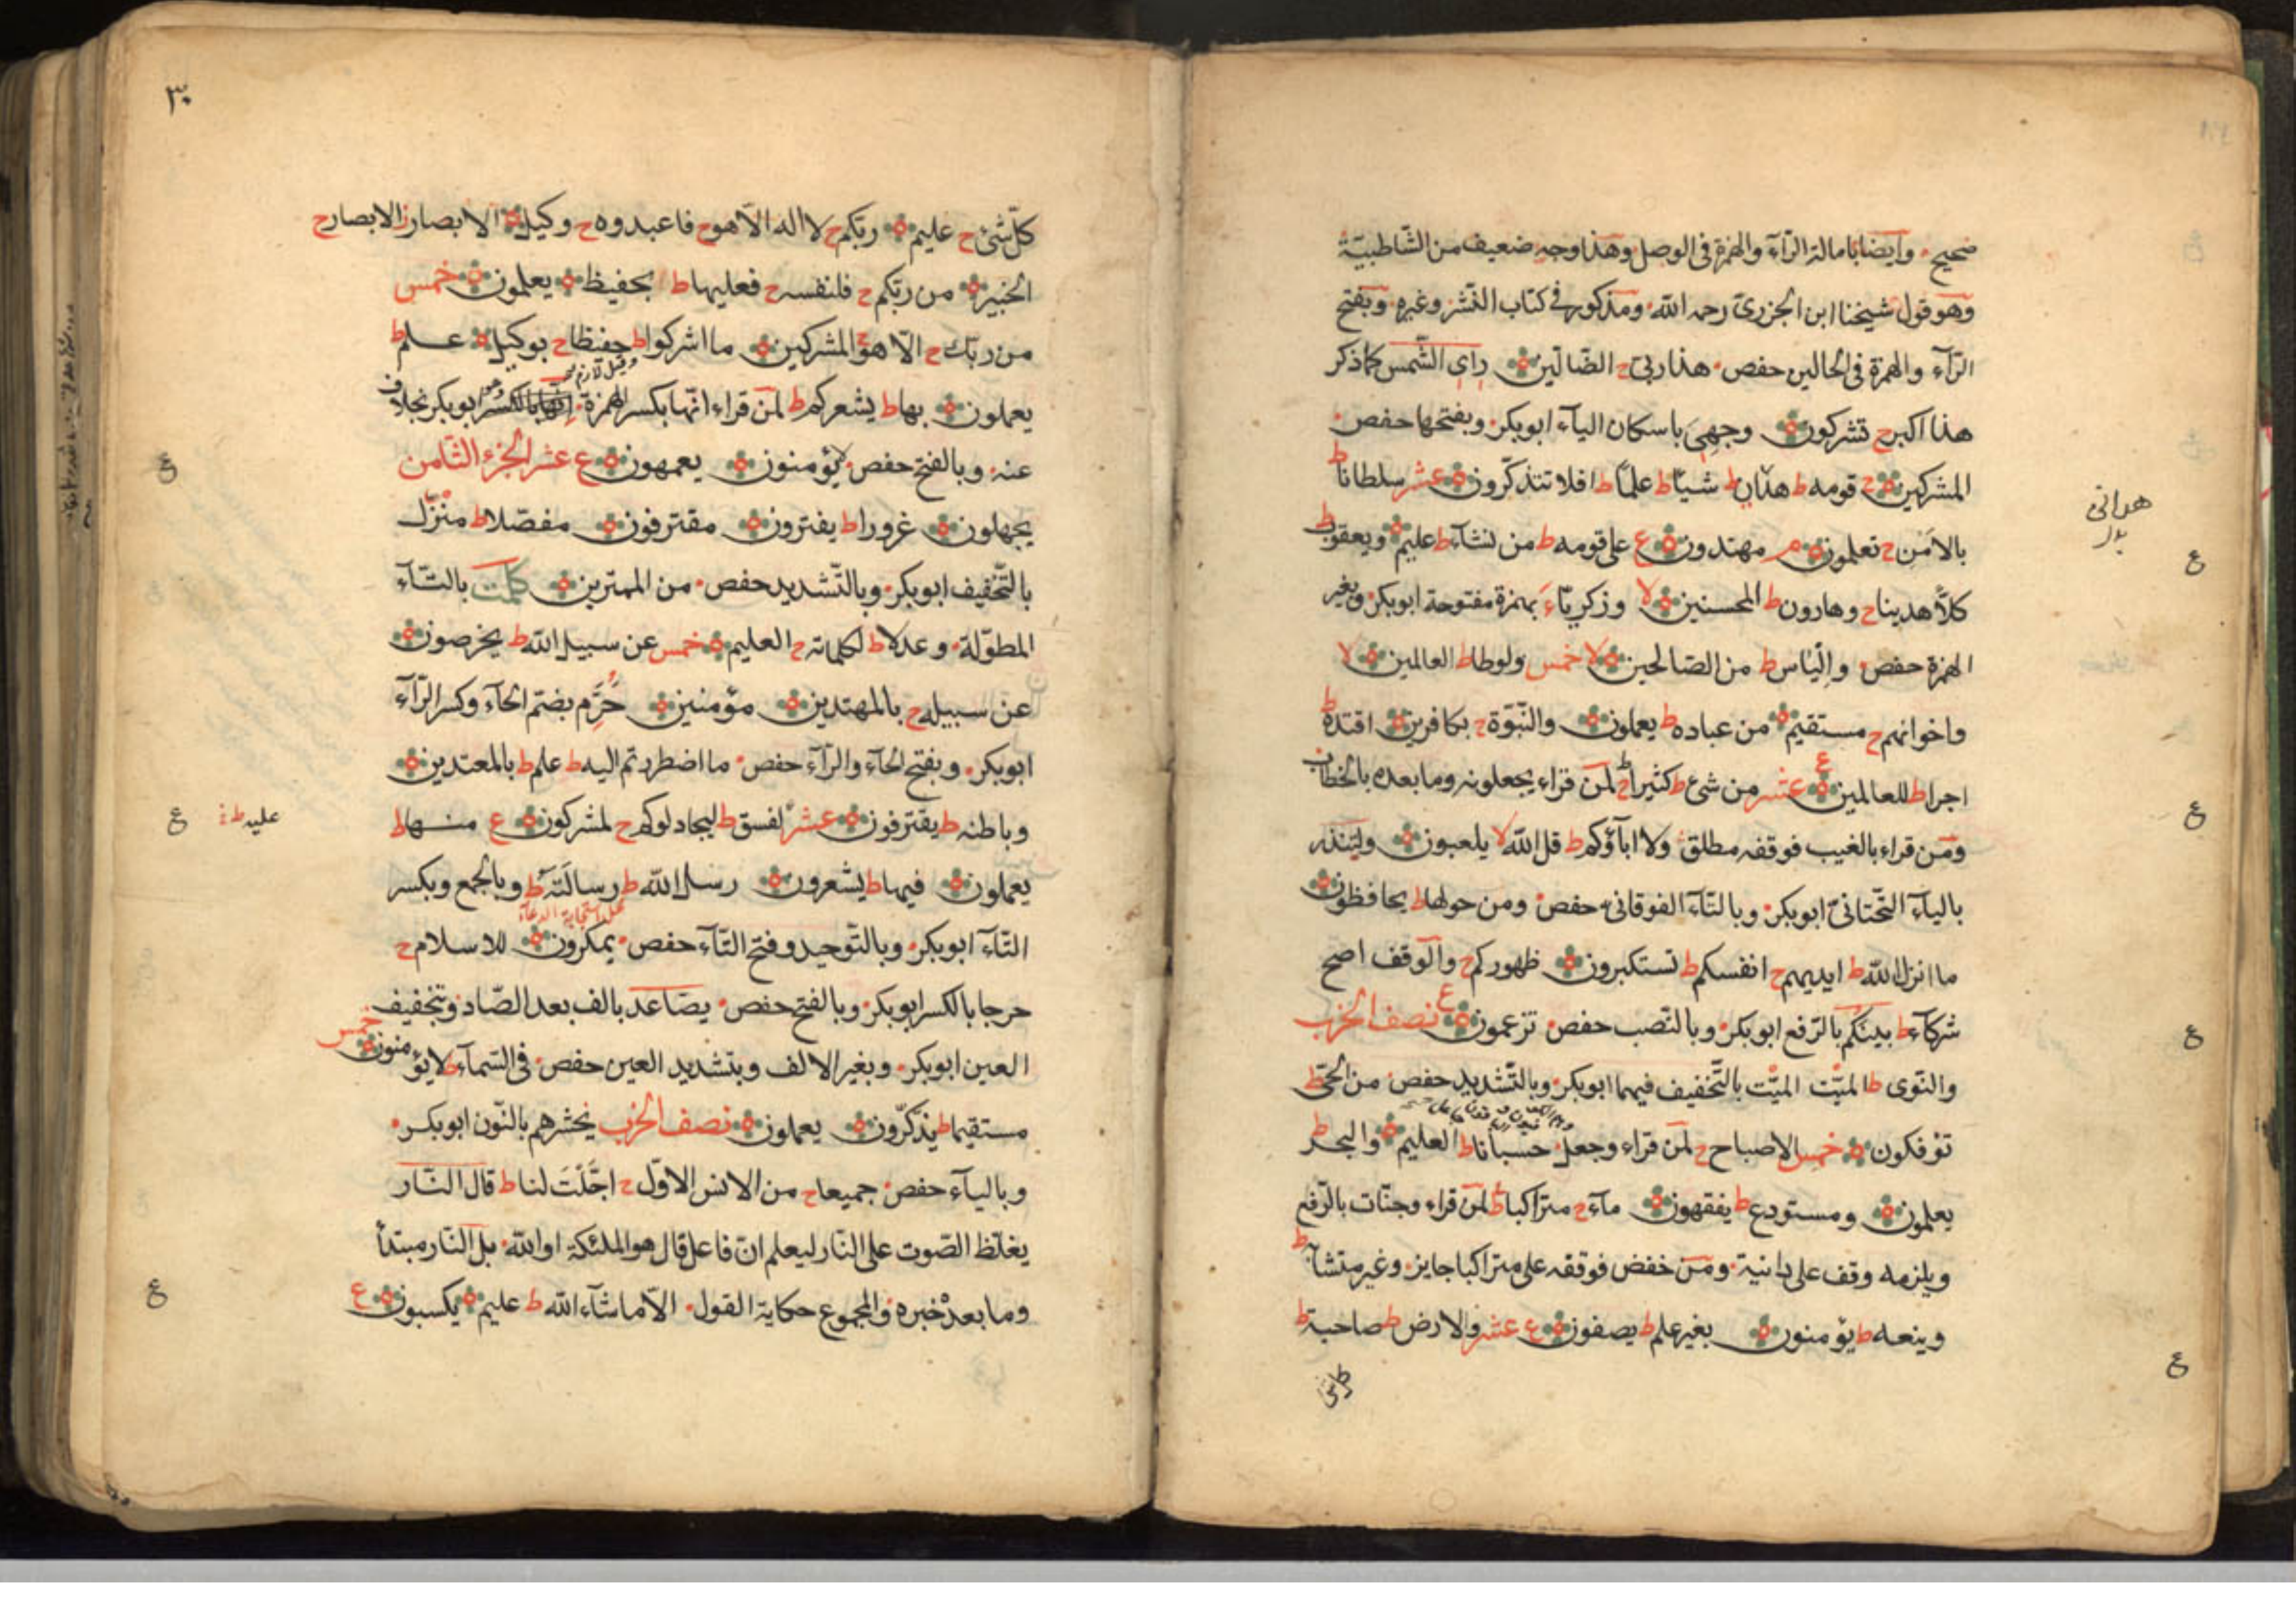 صحيح وايضا بامالة الرّآء والهمزة فى الوصل وهذا وجه ضعيف من الشّاطبيّة
وهو قول شيخنا ابن الجزرىّ رحمه الله ومذكور فى كتاب النّشر وغيره وبفتح
الرّآء والهمزة فى الحالين حفص هذا ربّى ح الضّالّين راى الشّمس كما ذكر
هذا اكبر ح تشركون وجهى باسكان الياء ابو بكر وبفتحها حفص
المشركين ح قومه ط هدان ط شيئا ط علمًا ط افلا تتذكّرون عشر سلطانا ط
بالامن ح تعلمون م مهتدون ع على قومه ط من نشآء ط عليم ويعقوب ط
كلّا هدينا ح وهارون ط المحسنين لا وزكريّاء بهمزة مفتوحة ابو بكر وبغير
الهمزة حفص والياس ط من الصّالحين لا خمس ولوطا ط العالمين لا
واخوانهم ح مستقيم من عباده ط يعملون والنّبوّة ح بكافرين اقتده ط
اجرا ط للعالمين ع عشر من شئ ط كثيرا ح لمن قراء يجعلونه وما بعده بالخطاب
ومن قراء بالغيب فوقفه مطلق ولا اباؤكم ط قل الله لا يلعبون ولينذر
بالياء التّحتانىّ ابو بكر وبالتّاء الفوقانى حفص ومن حولها ط يحافظون
ما انزل الله ط ايديهم ح انفسكم ط تستكبرون ظهوركم ح والوقف اصح
شركآء ط بينكم بالرّفع ابو بكر وبالنّصب حفص تزعمون ع نصف الحزب
والنّوى ط الميّت الميّت بالتّخفيف فيهما ابو بكر وبالتّشديد حفص من الحىّ ط
تؤفكون خمس الاصباح ح لمن قراء وجعل حسبانا ط العليم والبحر ط
يعلمون ومستودع ط يفقهون مآء ح متراكبا ط لمن قراء وجنّات بالرّفع
ويلزمه وقف على دانية ومن خفض فوقفه على متراكبا جايز وغير متشابه ط
وينعه ط يؤمنون بغير علم ط يصفون ع عشر والارض ط صاحبة ط
كل شئ
ع
ع
ع
ع
٣٠
كلّ شئ ح عليم ربّكم ح لا اله الّا هو ح فاعبدوه ح وكيل الابصار ز الابصار ح
الخبير من ربّكم ح فلنفسه ح فعليها ط بحفيظ يعلمون خمس
من ربّك ح الّا هو ح المشركين ما اشركوا ط حفظا ح بوكيل علم ط
يعملون بها ط يشعركم ط لمن قراء انّها بكسر الهمزة انّها بالكسر ابو بكر بخلاف
عنه وبالفتح حفص لا يؤمنون يعمهون ع عشر الجزء الثّامن
يجهلون غرورا ط يفترون مقترفون مفصّلا ط منزّل
بالتّخفيف ابو بكر وبالتّشديد حفص من الممترين كلمت بالتّآء
المطوّلة وعدلا ط لكلماته ح العليم خمس عن سبيل الله ط يخرصون
عن سبيله ح بالمهتدين مؤمنين حُرِّم بضمّ الحآء وكسر الرّآء
ابو بكر وبفتح الحآء والرّآء حفص ما اضطررتم اليه ط علم ط بالمعتدين
وباطنه ط يقترفون عشر لفسق ط ليجادلوكم ح لمشركون ع منها ط
يعملون فيها ط يشعرون رسل الله ط رسالته ط وبالجمع وبكسر
محل استجابة الدعاء
التّآء ابو بكر وبالتّوحيد وفتح التّآء حفص يمكرون للاسلام ح
حرجا بالكسر ابو بكر وبالفتح حفص يصّاعد بالف بعد الصّاد وتخفيف
العين ابو بكر وبغير الالف وبتشديد العين حفص فى السّمآء ط لا يؤمنون خمس
مستقيما ط يذّكّرون يعملون نصف الحزب نحشرهم بالنّون ابو بكر
وبالياء حفص جميعا ح من الانس الاوّل ح اجّلت لنا ط قال النّار
يغلّظ الصّوت على النّار ليعلم انّ فاعل قال هو الملئكة او الله بل النّار مبتدأ
وما بعده خبره والمجموع حكاية القول الّا ما شآء الله ط عليم يكسبون ع
ع
عليه ط
ع
ع